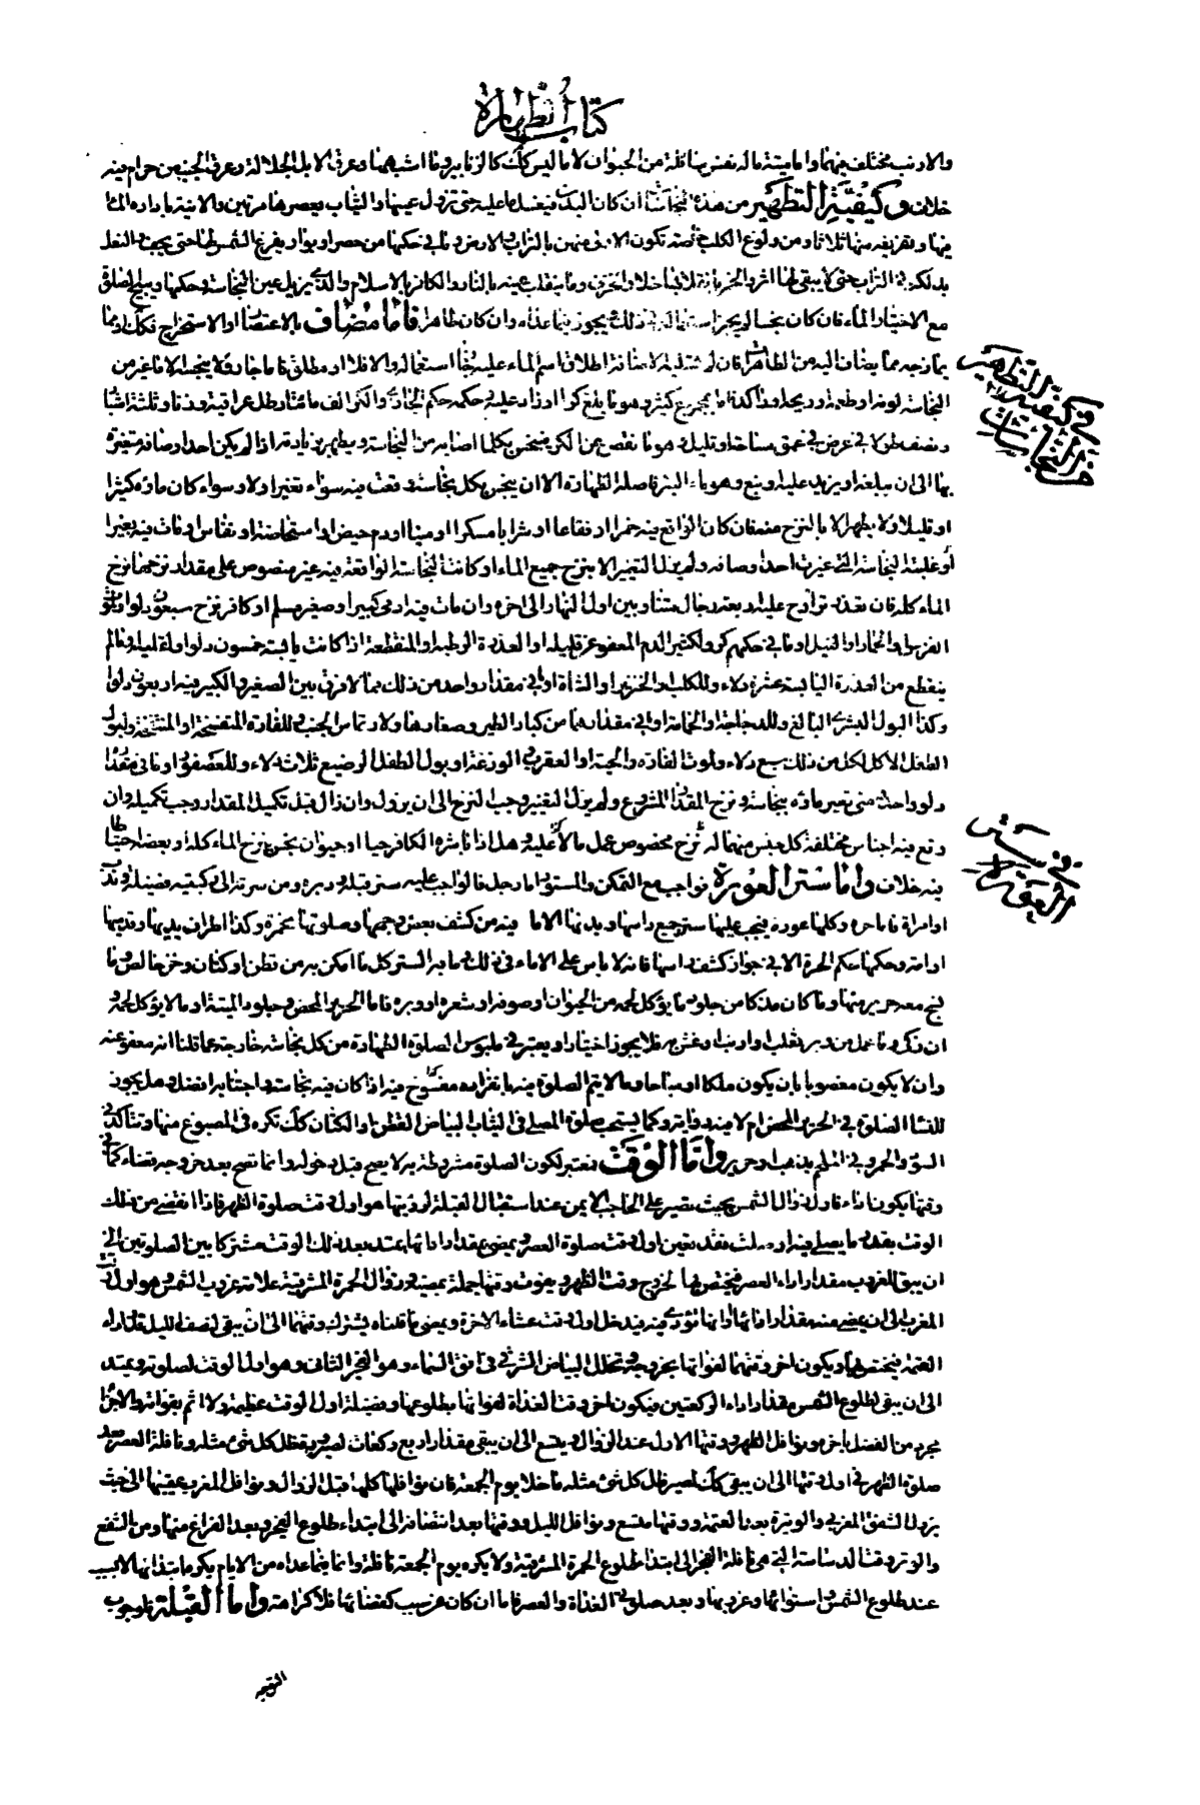 كتاب الطهارة
والارنب مختلف فيهما واما ميتة ماله نفس سائلة من الحيوان لا ما ليس كذلك كالزنابير وما اشبهها وعرق الابل الجلالة وعرق الجنب من حرام فيه
خلاف وكيفية التطهير من هذه النجاسات ان كان البدن فيغسل ما عليه حتى تزول عينها والثياب بعصرها مرتين والانية بادارة الماء
فيها وتفريغه منها ثلاثا ومن ولوغ الكلب خاصة تكون الاولى منهن بالتراب والارض وما في حكمها من حصر او بواري بقرع الشمس لها حتى يجف والنعل
بدلكه في التراب حتى لا يبقى لها اثر والخمر بانقلابها خلا والخزف وما ينقلب عينه بالنار والكافر بالاسلام والذي يزيل عين النجاسة وحكمها ويبيح الصلوة
مع الاختيار الماء فان كان نجسا لم يجز استعماله في ذلك ويجوز فيما عداه وان كان طاهرا فاما مضاف بالاعتصار او الاستخراج فكذلك او بما
يمازجه مما يضاف اليه من الطاهر فان لم تسلبه الاضافة اطلاق اسم الماء عليه جاز استعماله والا فلا او مطلق فاما جار ولا ينجسه الا ما غير من
النجاسة لونه او طعمه او ريحه او راكد فاما مجموع كثير وهو ما بلغ كرا او زاد عليه في حكمه حكم الجاري والكر الف ومائتا رطل عراقية وزنا وثلثة اشبار
ونصف طولا في عرض في عمق مساحة او قليل وهو ما نقص عن الكر فينجس بكل ما اصابه من النجاسة ويطهر بزيادته اذا لم يكن احد اوصافه متغيرة
بها الى ان يبلغه او يزيد عليه او نبع وهو ماء البئر فاصله الطهارة الا ان ينجس بكل نجاسة وقعت فيه سواء تغير او لا وسواء كان ماؤه كثيرا
او قليلا ولا يطهر الا بالنزح منه فان كان الواقع فيه خمرا او فقاعا او شرابا مسكرا او منيا او دم حيض او استحاضة او نفاس او مات فيه بعير
او غلبته النجاسة التي غيرت احد اوصافه ولم يزل التغير الا بنزح جميع الماء او كانت النجاسة الواقعة فيه غير منصوص على مقدار نزحها نزح
الماء كله فان تعذر تراوح عليه اربعة رجال مثناوبين اول النهار الى اخره وان مات فيه ادمي كبير او صغير مسلم او كافر نزح سبعون دلوا ولموت
الفرس او الحمار او الفيل وما في حكمهم كر ولكثير الدم المعفو عن قليله او العذرة الرطبة او المنقطعة اذا كانت يابسة خمسون دلوا ولقليله وما لم
ينقطع من العذرة اليابسة عشرة دلاء وللكلب والخنزير او الشاة او في مقدار واحد من ذلك مما لا فرق بين الصغير والكبير فيه اربعون دلوا
وكذا البول البشري البالغ وللدجاجة والحمامة او في مقدارهما من كبار الطير وصغارها ولارتماس الجنب وللفارة المنفسخة او المنتفخة ولبول
الطفل الاكل لكل من ذلك سبع دلاء ولموت الفارة والحية او العقرب او الوزغة او بول الطفل الرضيع ثلاث دلاء وللعصفور او ما في مقداره
دلو واحد ومتى تغير ماؤه بنجاسة ونزح المقدار المشروع ولم يزل التغير وجب النزح الى ان يزول وان زال قبل تكميل المقدار وجب تكميله وان
وقع فيه اجناس مختلفة كل جنس منها له نزح مخصوص عمل بالاغلب وهل اذا باشره الكافر حيا او حيوان نجس نزح الماء كله او بعضه احتياطا
فيه خلاف واما ستر العورة فواجب مع التمكن والمستور اما رجل فالواجب عليه ستر قبله ودبره ومن سرته الى ركبتيه فضيلة وندب
او امراة فاما حرة وكلها عورة فيجب عليها ستر جميع راسها وبدنها الا ما فيه من كشف بعض وجهها وصلوتها بخمرة وكذا اطراف يديها وقدميها
او امة وحكمها حكم الحرة الا في جواز كشف راسها فانه لا باس على الاماء في ذلك وما به الستر كل ما امكن به من قطن او كتان وخز خالص وما
نسج معه حرير منها وما كان مذكا من جلود ما يؤكل لحمه من الحيوان او صوفه او شعره او وبره فاما الحرير المحض وجلود الميتة او ما لا يؤكل لحمه
ان ذكي وما عمل من وبر ثعلب او ارنب او غش به فلا يجوز اختيارا ويعتبر في ملبوس الصلوة الطهارة من كل نجاسة خارجة عما قلنا انه معفو عنه
وان لا يكون مغصوبا بان يكون ملكا او مباحا وما لا يتم الصلوة فيه بانفراده مفسوح فيه اذا كان فيه نجاسة واجتنابه افضل وهل يجوز
للنساء الصلوة في الحرير المحض ام لا فيه روايتان وكما يستحب صلوة المصلي في الثياب البياض القطن او الكتان كذلك تكره في المصبوغ منها وتتاكد في
السود والحمر وفي الملحم بذهب او حرير واما الوقت فمعتبر لكون الصلوة مشروطة به لا يصح قبل دخوله وانما تصح بعد خروجه قضاء كما في
وقتها يكون اداء فاول زوال الشمس بحيث تصير على الحاجب الايمن عند استقبال القبلة لرؤيتها هو اول وقت صلوة الظهر فاذا انقضى من ذلك
الوقت بقدر ما يصلى فيه اربع ركعات فقد تعين اول وقت صلوة العصر وبمضي مقدار ادائها يمتد بعد ذلك الوقت مشتركا بين الصلوتين الى
ان يبقى للغروب مقدار اداء العصر فيختص بها لخروج وقت الظهر ويفوت وقتها جملة بمضيه وزوال الحمرة المشرقية علامة غروب الشمس وهو اول وقت
المغرب الى ان يمضي منه مقدار ادائها وانها تؤدى فيه فيدخل اول وقت عشاء الاخرة وبمضي ما قلناه يشترك وقتهما الى ان يبقى لنصف الليل مقدار اداء
العتمة فيختص بها ويكون اخر وقتهما لفواتها بخروجه وتخلل البياض الشرقي في افق السماء وهو الفجر الثاني وهو اول الوقت لصلوته ويمتد
الى ان يبقى لطلوع الشمس مقدار اداء الركعتين فيكون اخر وقت الغداة لفواتها بطلوعها وفضيلة اول الوقت عظيمة ولا اثم بفواته والاجزا
مجرد من الفضل باخره ونوافل الظهر وقتها الاول عند الزوال ويتسع الى ان يبقى مقدار اربع ركعات لصيرورة ظل كل شئ مثله ونافلة العصر بعد
صلوة الظهر في اول وقتها الى ان يبقى كذلك لصير ظل كل شئ مثله ما خلا يوم الجمعة فان نوافلها كلها قبل الزوال ونوافل المغرب عقيبها الى حيث
يزول الشفق المغربي والوتيرة بعد العتمة ووقتها متسع ونوافل الليل ووقتها بعد انتصافه الى ابتداء طلوع الفجر وبعد الفراغ منها ومن الشفع
والوتر وقت الدساسة التي هي نافلة الفجر الى ابتداء طلوع الحمرة المشرقية ولا يكره يوم الجمعة نافلة وانما فيما عداه من الايام يكره ابتداؤها لا لسبب
عند طلوع الشمس واستوائها وغروبها وبعد صلوتي الغداة والعصر فاما ان كان عن سبب كقضائها فلا كراهة واما القبلة فلوجوب
التوجه
في كيفية التطهير
من النجاسات
في ستر
العورة